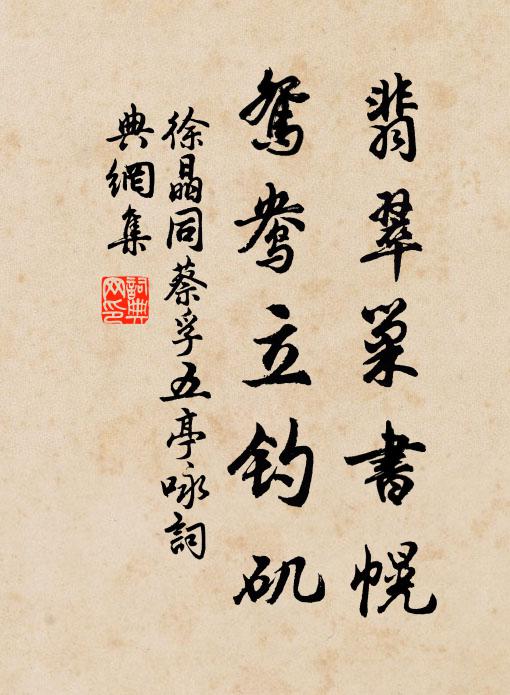 翡翠巢書幌
鴛鴦立釣矶
徐晶同蔡孚五亭咏詞
典網集
詞典网印